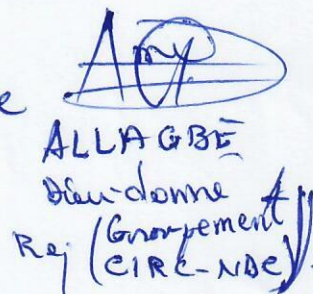 e
ALLAGBE
Dieu-donne
Rej (Groupement
CIRC-NDC)